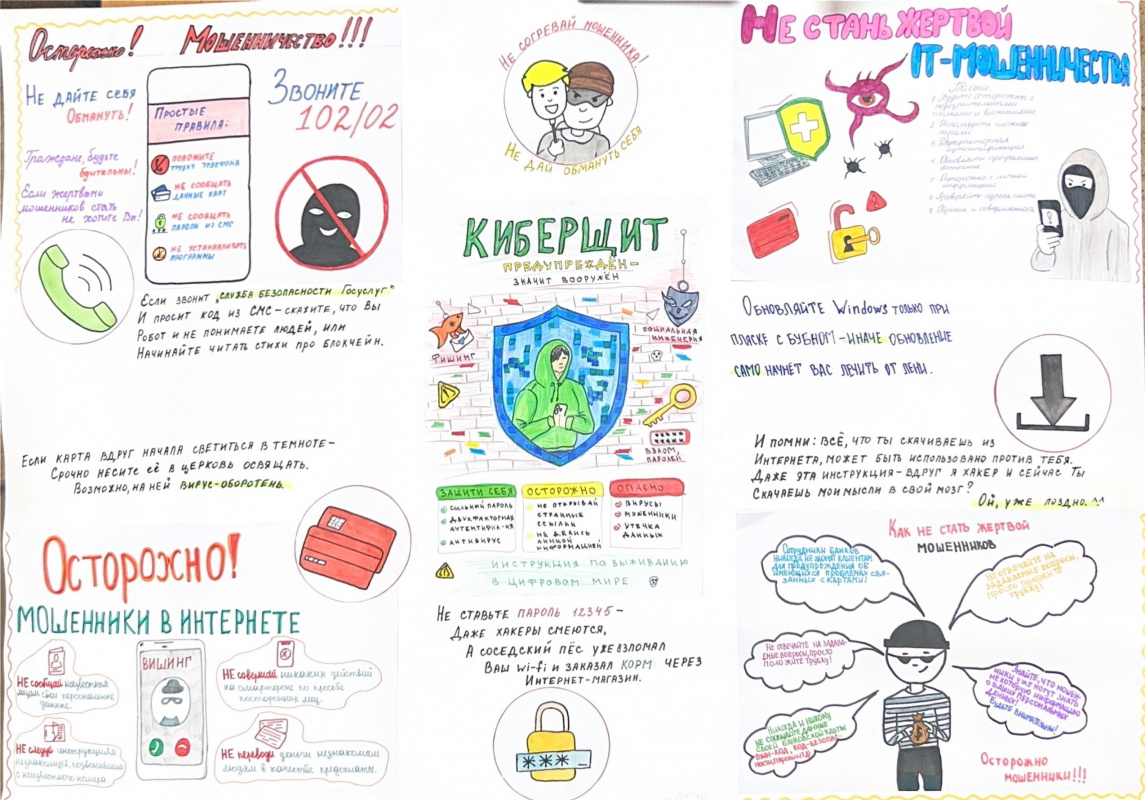 Осторожно! Мошенничество!!!
Не дайте себя
обмануть!
Граждане, будьте
бдительны!
Если жертвами
мошенников стать
не хотите Вы!
Простые
правила:
положите
трубку телефона
не сообщать
данные карт
не сообщать
пароли из СМС
не устанавливать
программы
Звоните
102/02
Если звонит „служба безопасности Госуслуг"
И просит код из СМС – скажите, что вы
робот и не понимаете людей, или
начинайте читать стихи про блокчейн.
Если карта вдруг начала светиться в темноте –
срочно несите её в церковь освящать.
Возможно, на ней вирус-оборотень.
Осторожно!
Мошенники в интернете
НЕ сообщай неизвестным
людям свои персональные
данные.
НЕ следуй инструкциям
незнакомцев, позвонившим
с неизвестного номера.
ВИШИНГ
НЕ совершай никаких действий
на смартфоне по просьбе
посторонних лиц.
НЕ переводи деньги незнакомым
людям в качестве предоплаты.
Не согревай мошенника!
Не дай обмануть себя
КИБЕРЩИТ
ПРЕДУПРЕЖДЁН –
ЗНАЧИТ ВООРУЖЁН
ФИШИНГ
СОЦИАЛЬНАЯ
ИНЖЕНЕРИЯ
ВЗЛОМ
ПАРОЛЕЙ
ЗАЩИТИ СЕБЯ
СИЛЬНЫЙ ПАРОЛЬ
ДВУХФАКТОРНАЯ
АУТЕНТИФИК-ИЯ
АНТИВИРУС
ОСТОРОЖНО
НЕ ОТКРЫВАЙ
СТРАННЫЕ
ССЫЛКИ
НЕ ДЕЛИСЬ
ЛИЧНОЙ
ИНФОРМАЦИЕЙ
ОПАСНО
ВИРУСЫ
МОШЕННИКИ
УТЕЧКА
ДАННЫХ
ИНСТРУКЦИЯ ПО ВЫЖИВАНИЮ
В ЦИФРОВОМ МИРЕ
Не ставьте пароль 12345 –
даже хакеры смеются,
а соседский пёс уже взломал
ваш wi-fi и заказал корм через
интернет-магазин.
***_
Не стань жертвой
IT-мошенничества
1. Будьте осторожны с
подозрительными
2. Используйте сложные
пароли
3. Двухфакторная
аутентификация
5. Осторожно с личной
информацией
Обновляйте Windows только при
пляске с бубном – иначе обновление
само начнёт вас лечить от лени.
И помни: всё, что ты скачиваешь из
интернета, может быть использовано против тебя.
Даже эта инструкция – вдруг я хакер и сейчас ты
скачаешь мои мысли в свой мозг?
Ой, уже поздно. ^^
Как не стать жертвой
мошенников
Сотрудники банков
никогда не звонят клиентам
для предупреждения об
имеющихся проблемах свя-
занных с картами!
Не отвечайте на
задаваемые вопросы,
просто положите
трубку!
Не отвечайте на задава-
емые вопросы, просто
положите трубку!
Знайте, что мошен-
ники уже могут знать
некоторую информацию
о ваших персональных
данных!
Будьте внимательны!
Никогда и никому
не сообщайте данные
своей банковской карты
Осторожно
мошенники!!!